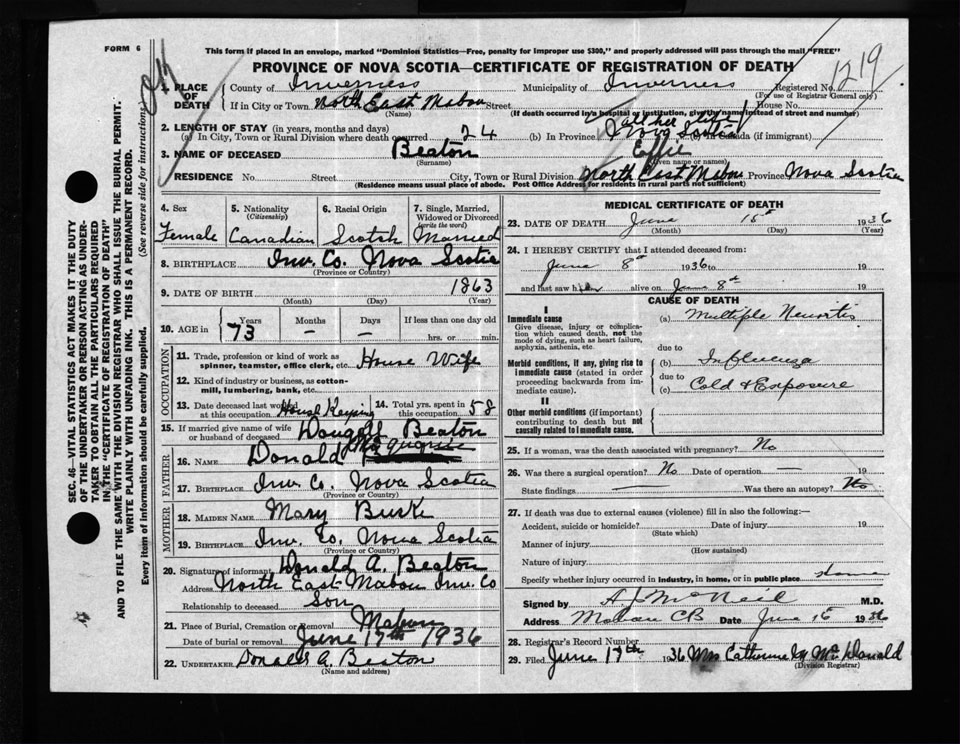 FORM 6
This form if placed in an envelope, marked "Dominion Statistics—Free, penalty for improper use $300," and properly addressed will pass through the mail "FREE"
PROVINCE OF NOVA SCOTIA—CERTIFICATE OF REGISTRATION OF DEATH
1219
1. PLACE OF DEATH County of Inverness Municipality of Inverness Registered No.
(For use of Registrar General only)
If in City or Town North East Mabou Street House No.
(Name) (If death occurred in a hospital or institution, give its name instead of street and number)
2. LENGTH OF STAY (in years, months and days) all her life
(a) In City, Town or Rural Division where death occurred 24 (b) In Province Nova Scotia (c) In Canada (if immigrant)
3. NAME OF DECEASED Beaton Effie
(Surname) (Given name or names)
RESIDENCE No. Street City, Town or Rural Division North East Mabou Province Nova Scotia
(Residence means usual place of abode. Post Office Address for residents in rural parts not sufficient)
4. Sex 5. Nationality (Citizenship) 6. Racial Origin 7. Single, Married, Widowed or Divorced (write the word)
Female Canadian Scotch Married
8. BIRTHPLACE Inv. Co. Nova Scotia
(Province or Country)
9. DATE OF BIRTH 1863
(Month) (Day) (Year)
10. AGE in Years Months Days If less than one day old
73 – – hrs. or min.
OCCUPATION
11. Trade, profession or kind of work as spinner, teamster, office clerk, etc. House Wife
12. Kind of industry or business, as cotton-mill, lumbering, bank, etc.
13. Date deceased last worked at this occupation House Keeping 14. Total yrs. spent in this occupation 58
15. If married give name of wife or husband of deceased Dougall Beaton
FATHER
16. NAME Donald
17. BIRTHPLACE Inv. Co. Nova Scotia
(Province or Country)
MOTHER
18. MAIDEN NAME Mary Burke
19. BIRTHPLACE Inv. Co. Nova Scotia
(Province or Country)
20. Signature of informant Donald A. Beaton
Address North East Mabou Inv. Co
Relationship to deceased Son
21. Place of Burial, Cremation or Removal Mabou
Date of burial or removal June 17th 1936
22. UNDERTAKER Donald A. Beaton
(Name and address)
MEDICAL CERTIFICATE OF DEATH
23. DATE OF DEATH June 15th 1936
(Month) (Day) (Year)
24. I HEREBY CERTIFY that I attended deceased from:
June 8th 1936 to 19
and last saw h alive on June 8th 19
CAUSE OF DEATH
Immediate cause (a) Multiple Neuritis
Give disease, injury or complication which caused death, not the mode of dying, such as heart failure, asphyxia, asthenia, etc.
due to
Morbid conditions, if any, giving rise to immediate cause (stated in order proceeding backwards from immediate cause). (b) Influenza
due to
(c) Cold & Exposure
II
Other morbid conditions (if important) contributing to death but not causally related to immediate cause.
25. If a woman, was the death associated with pregnancy? No
26. Was there a surgical operation? No Date of operation — 19
State findings — Was there an autopsy? No
27. If death was due to external causes (violence) fill in also the following:—
Accident, suicide or homicide? Date of injury 19
(State which)
Manner of injury
(How sustained)
Nature of injury
Specify whether injury occurred in industry, in home, or in public place
Signed by A J McNeil M.D.
Address Mabou CB Date June 15 1936
28. Registrar's Record Number
29. Filed June 17th 1936 Mrs Catherine M McDonald
(Division Registrar)
SEC. 46—VITAL STATISTICS ACT MAKES IT THE DUTY
OF THE UNDERTAKER OR PERSON ACTING AS UNDER-
TAKER TO OBTAIN ALL THE PARTICULARS REQUIRED
IN THE "CERTIFICATE OF REGISTRATION OF DEATH"
AND TO FILE THE SAME WITH THE DIVISION REGISTRAR WHO SHALL ISSUE THE BURIAL PERMIT.
WRITE PLAINLY WITH UNFADING INK. THIS IS A PERMANENT RECORD.
Every item of information should be carefully supplied. (See reverse side for instructions)